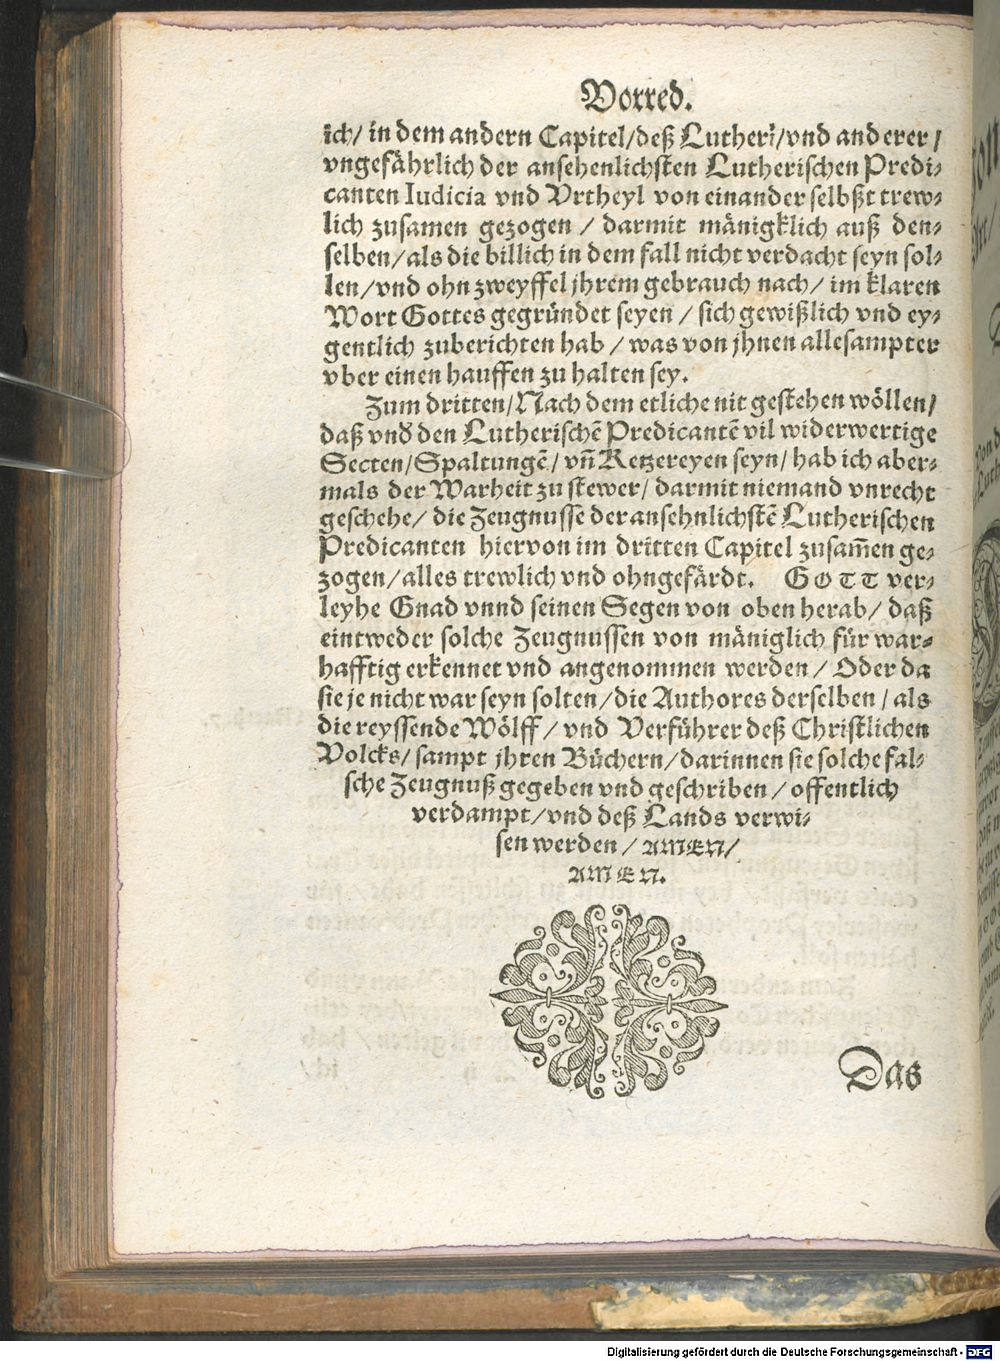 Vorred.
ich/ in dem andern Capitel/deß Lutheri/vnd anderer/
vngefährlich der ansehenlichsten Lutherischen Predi-
canten Iudicia vnd Vrtheyl von einander selbßt trew-
lich zusamen gezogen / darmit mänigklich auß den-
selben/als die billich in dem fall nicht verdacht seyn sol-
len/vnd ohn zweyffel jhrem gebrauch nach/ im klaren
Wort Gottes gegründet seyen / sich gewißlich vnd ey-
gentlich zuberichten hab / was von jhnen allesampter
vber einen hauffen zu halten sey.
Zum dritten/Nach dem etliche nit gestehen wöllen/
daß vnd den Lutherischē Predicantē vil widerwertige
Secten/Spaltungē/ vñ Ketzereyen seyn/ hab ich aber-
mals der Warheit zu stewer/ darmit niemand vnrecht
geschehe/ die Zeugnusse der ansehnlichstē Lutherischen
Predicanten hiervon im dritten Capitel zusam̄en ge-
zogen/alles trewlich vnd ohngefärdt. GOTT ver-
leyhe Gnad vnnd seinen Segen von oben herab/ daß
eintweder solche Zeugnussen von mäniglich für war-
hafftig erkennet vnd angenommen werden / Oder da
sie je nicht war seyn solten/die Authores derselben / als
die reyssende Wölff/ vnd Verführer deß Christlichen
Volcks/ sampt jhren Büchern/darinnen sie solche fal-
sche Zeugnuß gegeben vnd geschriben / offentlich
verdampt/vnd deß Lands verwi-
sen werden / AMEN/
AMEN.
Das
Digitalisierung gefördert durch die Deutsche Forschungsgemeinschaft - DFG